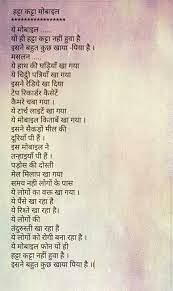 हट्टा कट्टा मोबाइल
******************
ये मोबाइल .....
यों ही हट्टा कट्टा नहीं हुवा है
इसने बहुत कुछ खाया -पिया है ।
मसलन .....
ये हाथ की घड़ियाँ खा गया
ये चिट्ठी पत्रियाँ खा गया
इसने रेडियो खा दिया
टेप रिकार्डर कैसेटें
कैमरे चबा गया ।
ये टार्च लाईटें खा गया ।
ये मोबाइल किताबें खा गया ।
इसने सैकड़ों मील की
दूरियाँ पी हैं ।
इस मोबाइल ने
तन्हाइयाँ पी हैं ।
पड़ोस की दोस्ती
मेल मिलाप खा गया
समय नही लोगों के पास
ये लोगों का वक्त खा गया ।
ये पैसे खा रहा है
ये रिश्ते खा रहा है।
ये लोगों की
तंदुरुस्ती खा रहा है
ये लोगों को रोगी बना रहा है ।
ये मोबाइल फोन यों ही
हट्टा कट्टा नहीं हुवा है ।
इसने बहुत कुछ खाया पिया है ।।